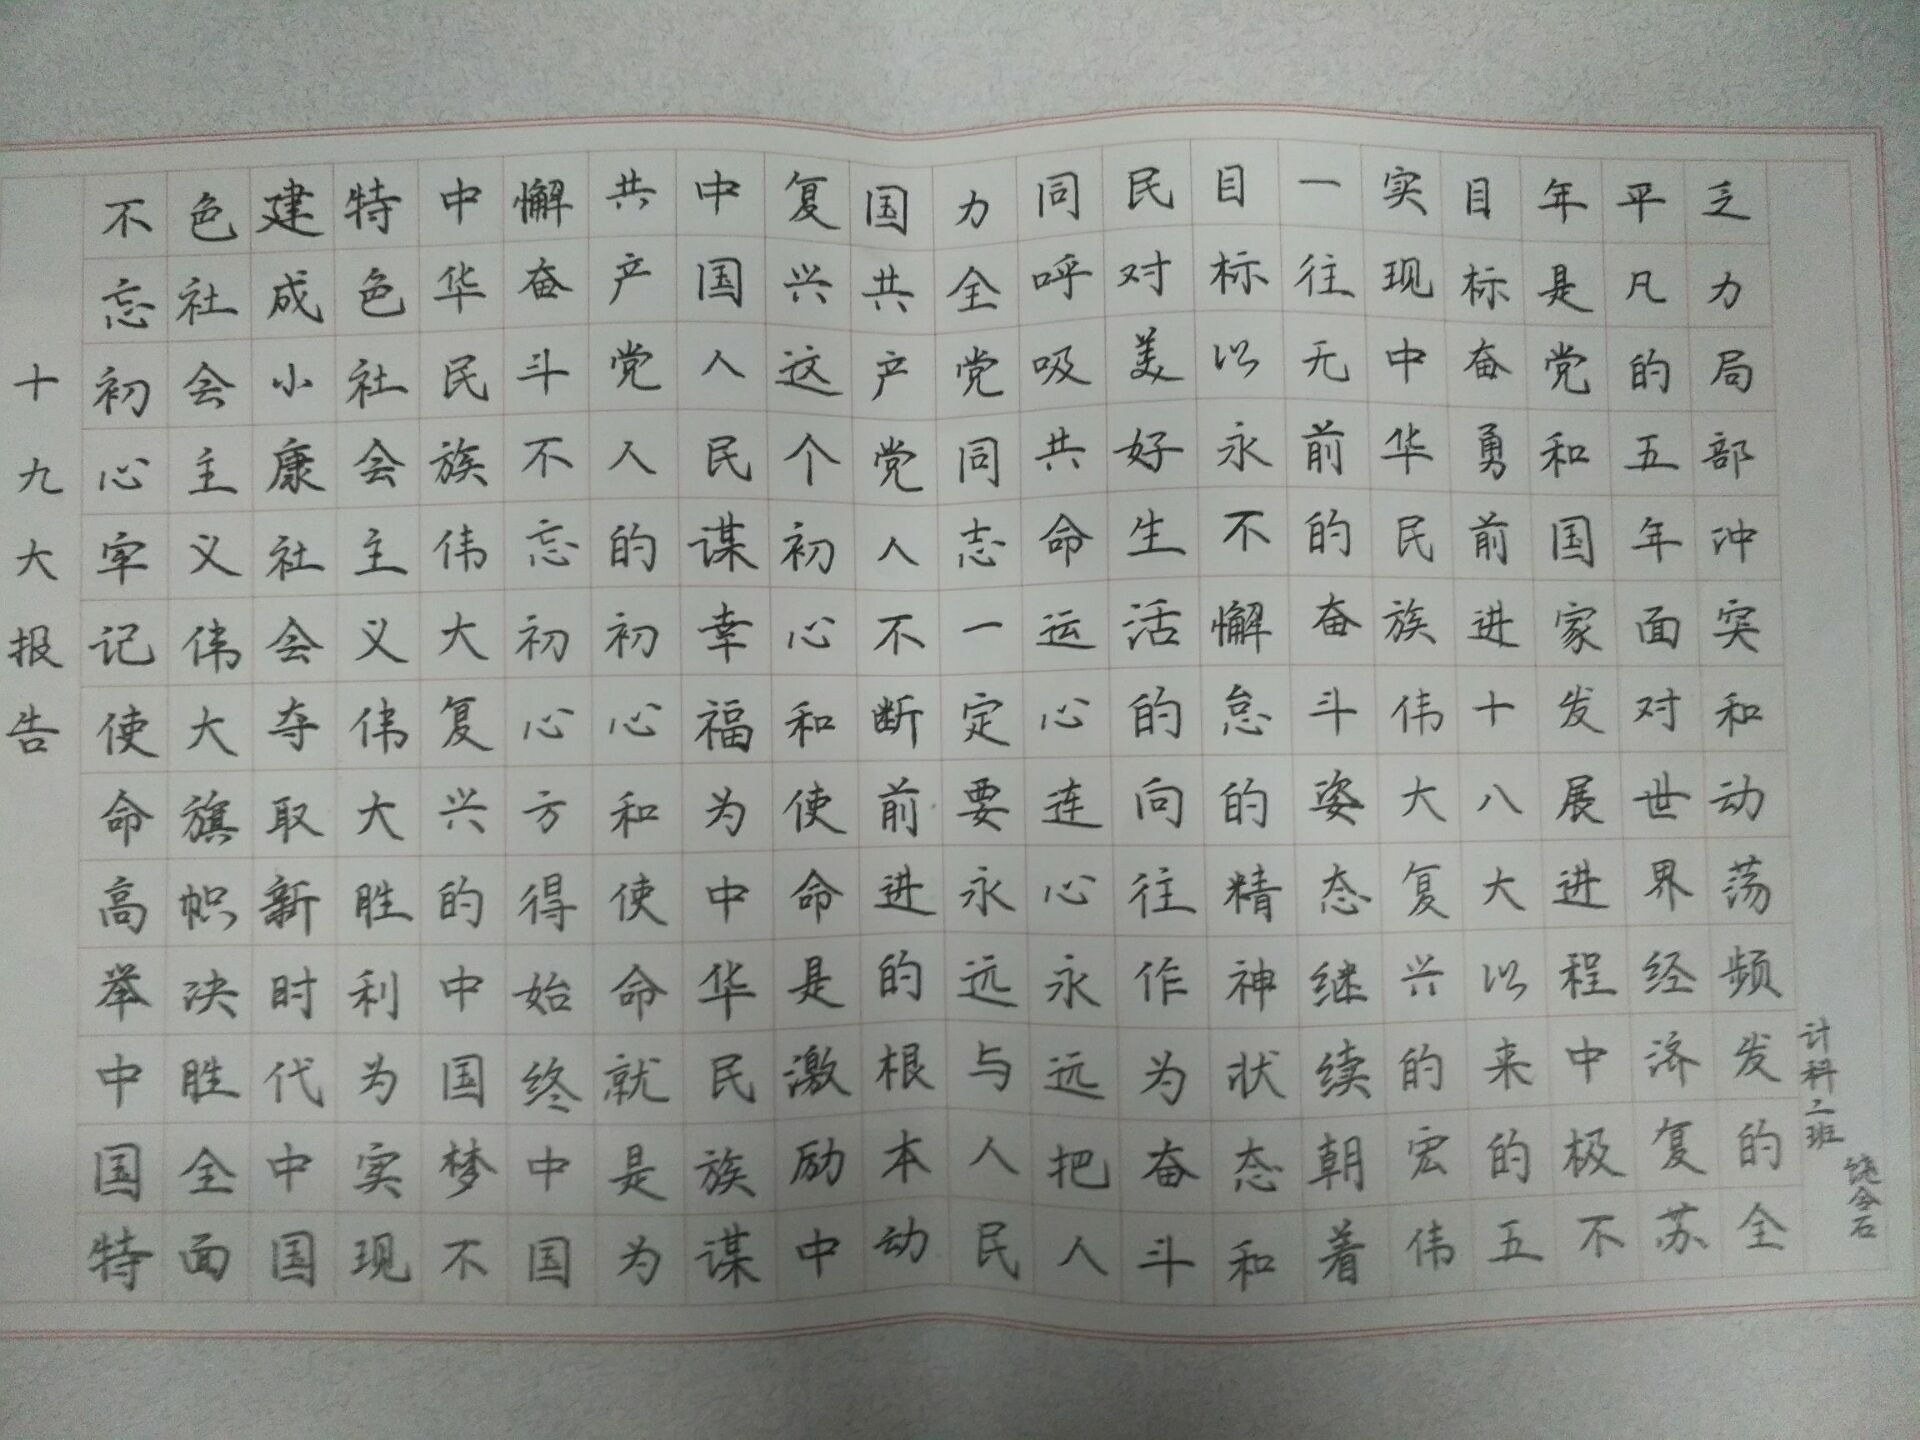 十九大报告
不忘初心牢记使命高举中国特
色社会主义伟大旗帜决胜全面
建成小康社会夺取新时代中国
特色社会主义伟大胜利为实现
中华民族伟大复兴的中国梦不
懈奋斗不忘初心方得始终中国
共产党人的初心和使命就是为
中国人民谋幸福为中华民族谋
复兴这个初心和使命是激励中
国共产党人不断前进的根本动
力全党同志一定要永远与人民
同呼吸共命运心连心永远把人
民对美好生活的向往作为奋斗
目标以永不懈怠的精神状态和
一往无前的奋斗姿态继续朝着
实现中华民族伟大复兴的宏伟
目标奋勇前进十八大以来的五
年是党和国家发展进程中极不
平凡的五年面对世界经济复苏
乏力局部冲突和动荡频发的全
计科二班